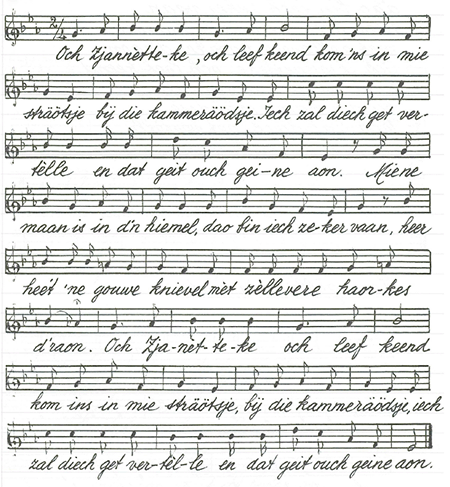 Och Zjannètte-ke, och leef keend kom'ns in mie
sträötsje bij die kammeräödsje. Iech zal diech get ver-
tèlle en dat geit ouch gei-ne aon. Miene
maan is in d'n hiemel, dao bin iech ze-ker vaan, heer
heet 'ne gouwe knievel mèt zèllevere haon-kes
d'raon. Och Zja-nèt-te-ke och leef keend
kom ins in mie sträötsje, bij die kammeräödsje, iech
zal diech get ver-tèl-le en dat geit ouch geine aon.